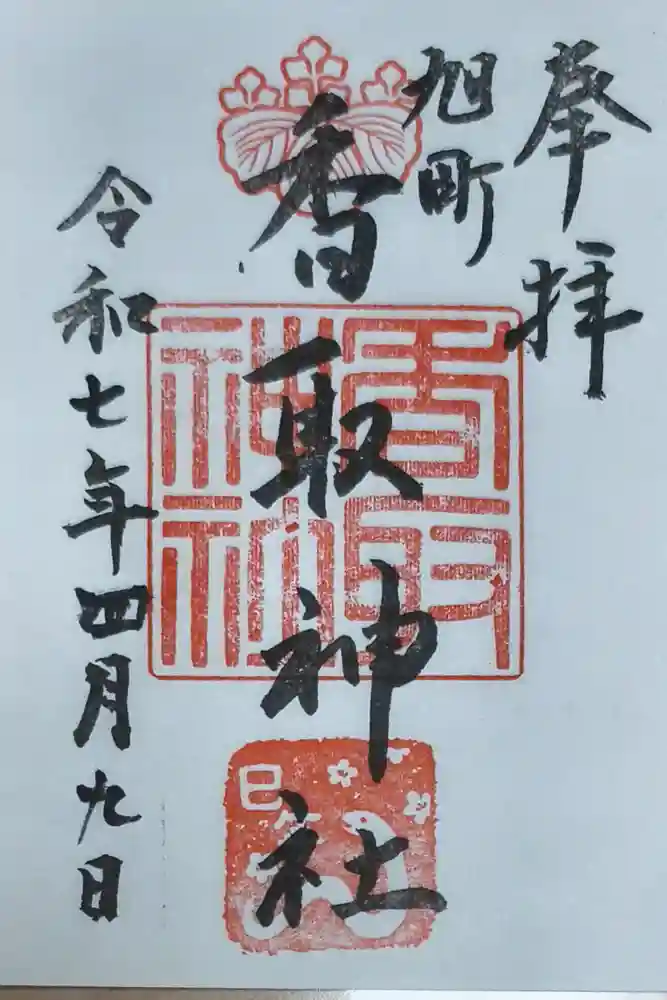 奉拝
旭町
香取神社
香取神社
巳年
令和七年四月九日